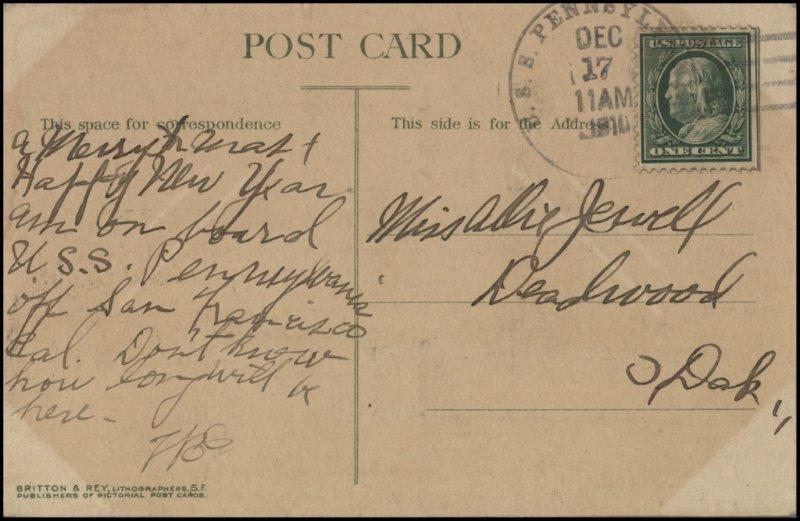 POST CARD
U.S.S. PENNSYL
DEC
17
11AM
1910
U.S. POSTAGE
ONE CENT
This space for correspondence
This side is for the Address
a Merry Xmas +
Happy New Year
am on board
U.S.S. Pennsylvania
off San Francisco
Cal. Don't know
how long will be
here -
Miss Allie Jewell
Deadwood
S Dak,,
BRITTON & REY, LITHOGRAPHERS, S.F.
PUBLISHERS OF PICTORIAL POST CARDS.